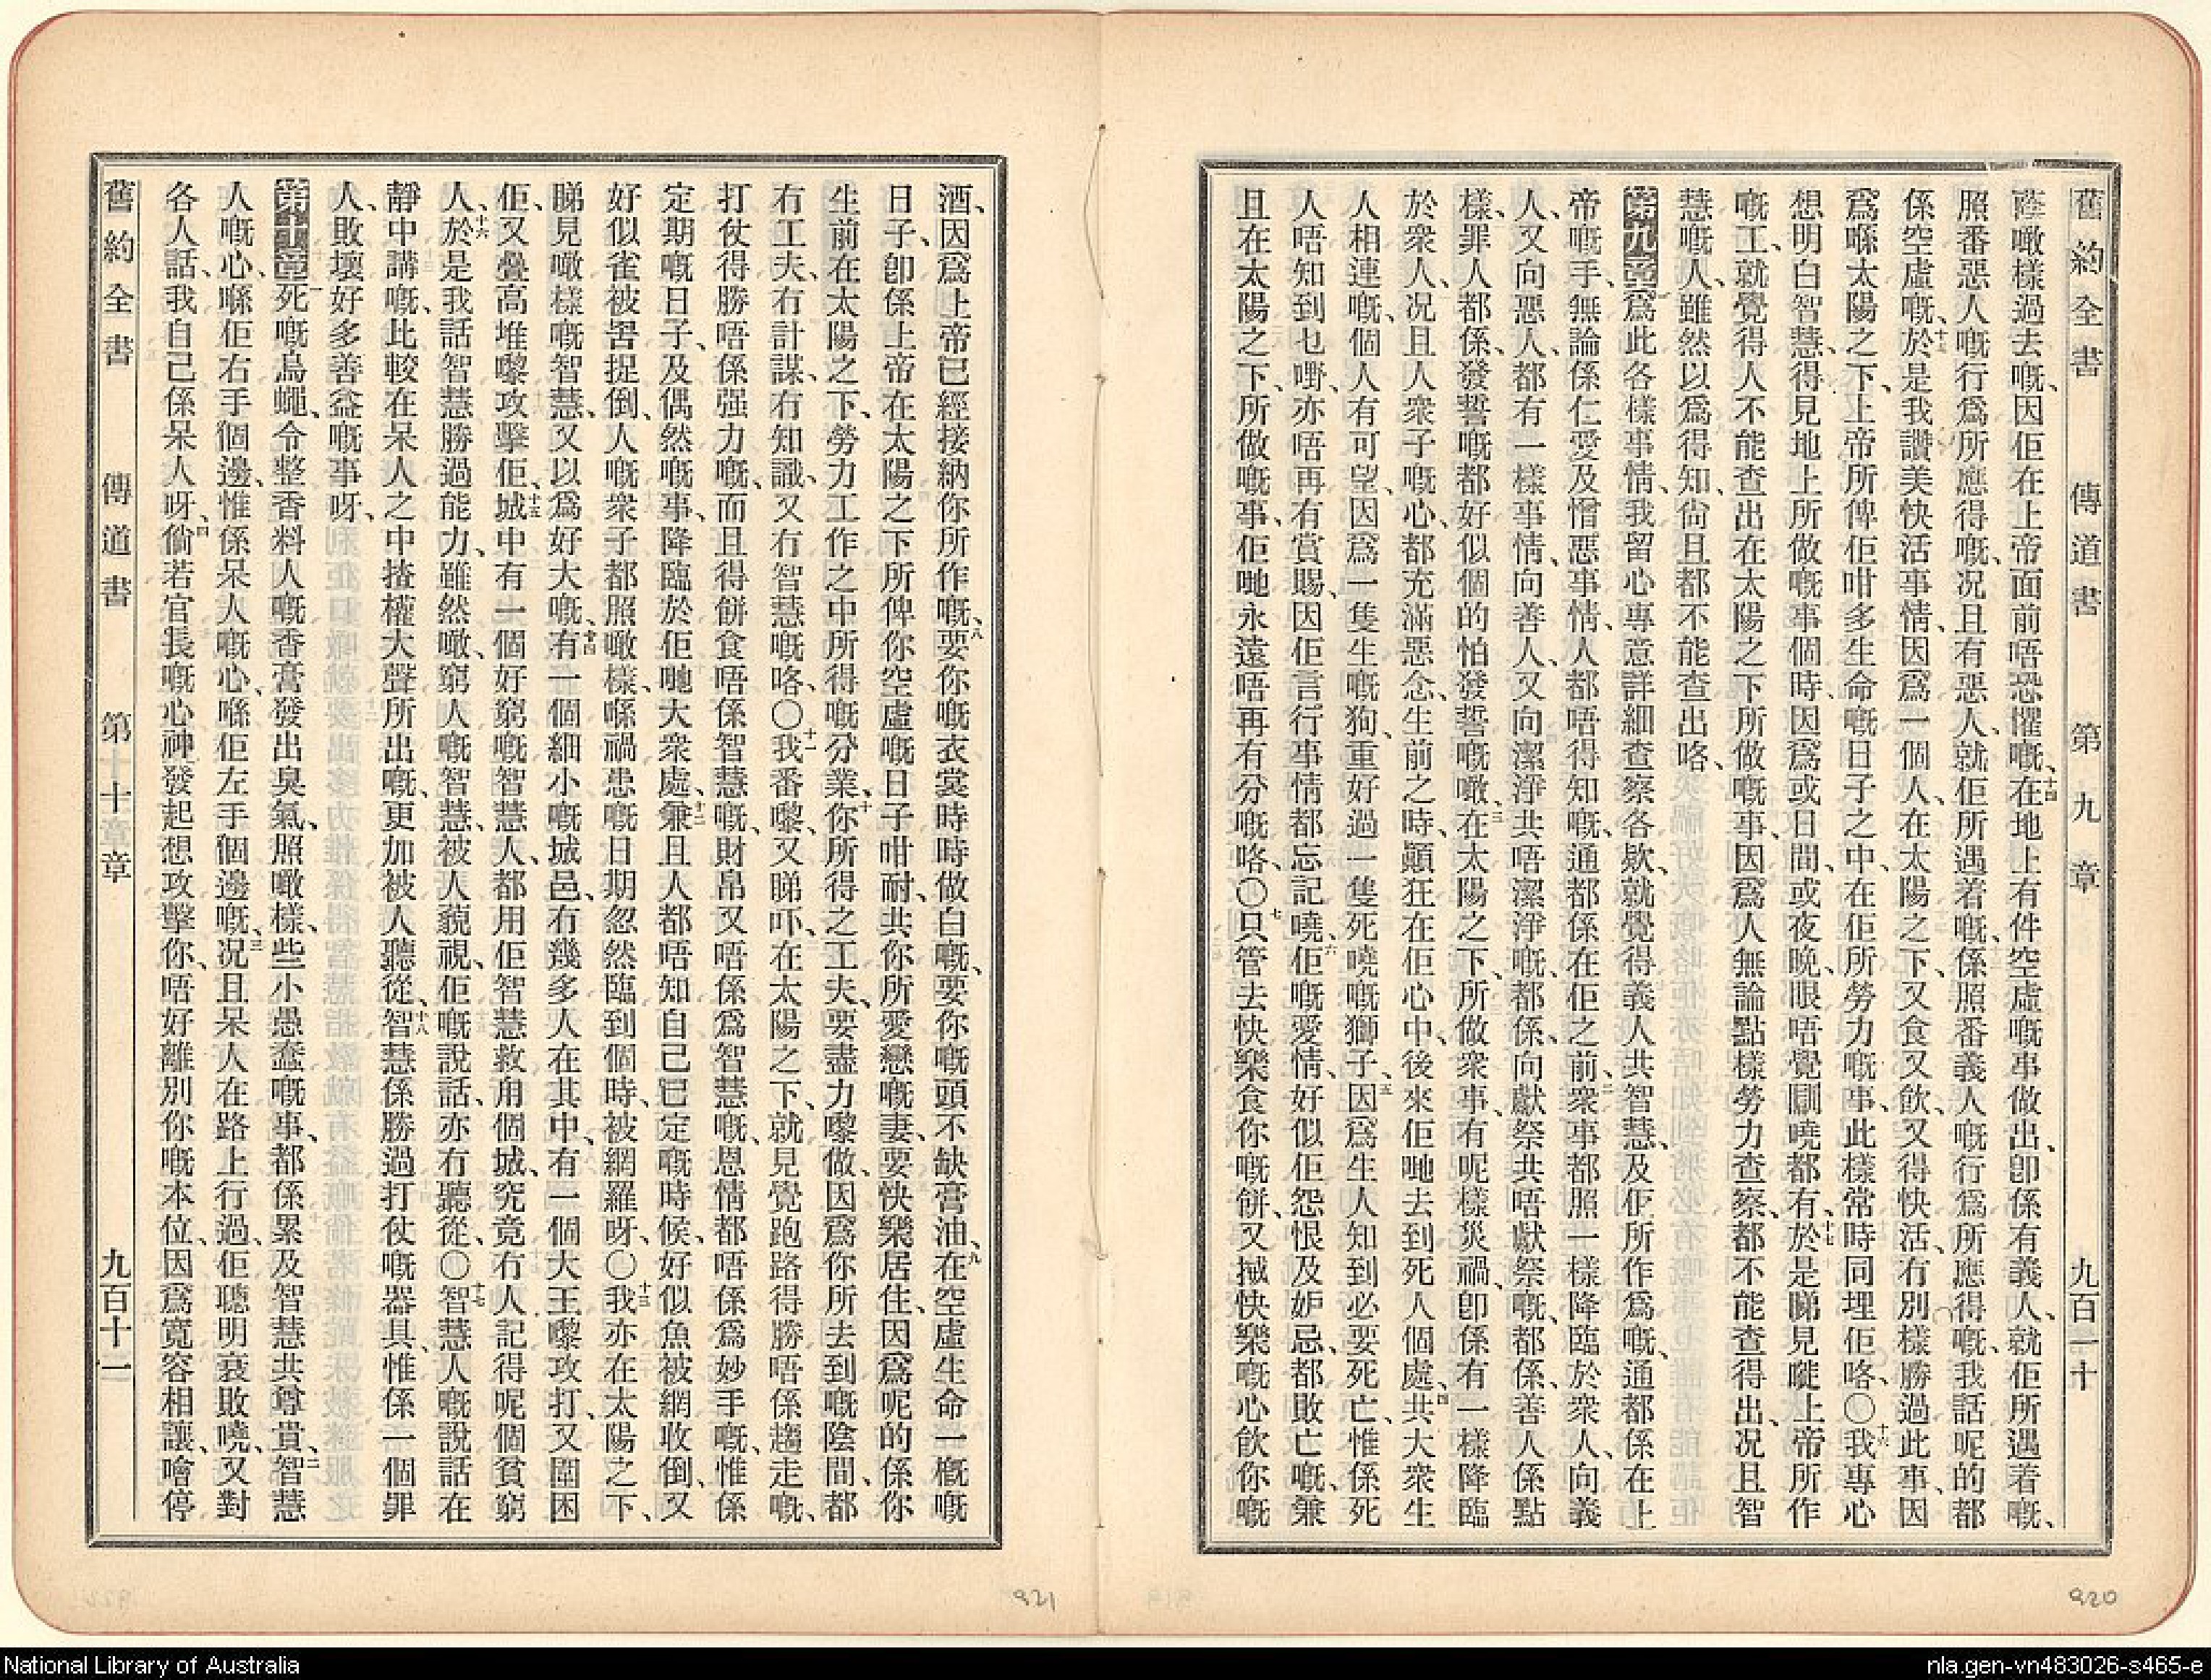 舊約全書 傳道書 第九章 九百二十
蔭噉樣過去嘅、因佢在上帝面前唔恐懼嘅、十四在地上有件空虛嘅事做出、卽係有義人、就佢所遇着嘅、
照番惡人嘅行爲所應得嘅、况且有惡人、就佢所遇着嘅、係照番義人嘅行爲所應得嘅、我話呢的都
係空虛嘅、十五於是我讚美快活事情、因爲一個人、在太陽之下、又食又飮、又得快活、冇別樣勝過此事、因
爲喺太陽之下、上帝所俾佢咁多生命嘅日子之中、在佢所勞力嘅事、此樣常時同埋佢咯、〇十六我專心
想明白智慧、得見地上所做嘅事個時、因爲或日間、或夜晚、眼唔覺瞓嘵都有、十七於是睇見嘥上帝所作
嘅工、就覺得人不能查出在太陽之下所做嘅事、因爲人無論點樣勞力查察、都不能查得出、况且智
慧嘅人、雖然以爲得知、尙且都不能查出咯、
第九章一爲此各樣事情、我留心專意詳細查察各欵、就覺得義人共智慧、及佢所作爲嘅、通都係在上
帝嘅手、無論係仁愛及憎惡事情、人都唔得知嘅、通都係在佢之前、二衆事都照一樣降臨於衆人、向義
人、又向惡人、都有一樣事情、向善人、又向潔淨共唔潔淨嘅、都係、向獻祭共唔獻祭嘅、都係、善人係點
樣、罪人都係、發誓嘅都好似個的怕發誓嘅噉、三在太陽之下、所做衆事、有呢樣災禍、卽係有一樣降臨
於衆人、况且人衆子嘅心、都充滿惡念、生前之時、顚狂在佢心中、後來佢哋去到死人個處、四共大衆生
人相連嘅、個人有可望、因爲一隻生嘅狗、重好過一隻死嘵嘅獅子、五因爲生人知到必要死亡、惟係死
人唔知到乜嘢、亦唔再有賞賜、因佢言行事情都忘記嘵、六佢嘅愛情、好似佢怨恨及妒忌、都敗亡嘅、兼
且在太陽之下、所做嘅事、佢哋永遠唔再有分嘅咯、〇七只管去快樂食你嘅餅、又𢬿快樂嘅心飮你嘅
920
酒、因爲上帝已經接納你所作嘅、八要你嘅衣裳時時做白嘅、要你嘅頭不缺膏油、九在空虛生命一概嘅
日子、卽係上帝在太陽之下所俾你空虛嘅日子咁耐、共你所愛戀嘅妻、要快樂居住、因爲呢的係你
生前在太陽之下、勞力工作之中所得嘅分業、十你所得之工夫、要盡力嚟做、因爲你所去到嘅陰間、都
冇工夫、冇計謀、冇知識、又冇智慧嘅咯、〇十一我番嚟、又睇吓、在太陽之下、就見覺跑路得勝、唔係趨走嘅、
打仗得勝唔係强力嘅、而且得餅食唔係智慧嘅、財帛又唔係爲智慧嘅、恩情都唔係爲妙手嘅、惟係
定期嘅日子、及偶然嘅事、降臨於佢哋大衆處、十二兼且人都唔知自己已定嘅時候、好似魚被網收倒、又
好似雀被罟捉倒、人嘅衆子都照噉樣、喺禍患嘅日期忽然臨到個時、被網羅呀、〇十三我亦在太陽之下、
睇見噉樣嘅智慧、又以爲好大嘅、十四有一個細小嘅城邑、冇幾多人在其中、有一個大王嚟攻打、又圍困
佢、又疊高堆嚟攻擊佢、十五城中有一個好窮嘅智慧人、都用佢智慧救甪個城、究竟冇人記得呢個貧窮
人、十六於是我話智慧勝過能力、雖然噉、窮人嘅智慧、被人藐視、佢嘅說話、亦冇聽從、〇十七智慧人嘅說話在
靜中講嘅、比較在呆人之中揸權大聲所出嘅、更加被人聽從、十八智慧係勝過打仗嘅器具、惟係一個罪
人、敗壞好多善益嘅事呀、
第十章一死嘅烏蠅、令整香料人嘅香膏發出臭氣、照噉樣、些小愚蠢嘅事、都係累及智慧共尊貴、二智慧
人嘅心、喺佢右手個邊、惟係呆人嘅心、喺佢左手個邊嘅、三况且呆人在路上行過、佢聰明衰敗嘵、又對
各人話、我自己係呆人呀、四倘若官長嘅心神發起想攻擊你、唔好離別你嘅本位、因爲寬容相讓、噲停
舊約全書 傳道書 第十章 九百二十一
921
National Library of Australia
nla.gen-vn483026-s465-e